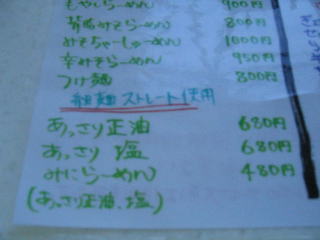 もやしらーめん 900円
背脂みそらーめん 800円
みそちゃーしゅーめん 1000円
辛みそらーめん 950円
つけ麺 800円
細麺 ストレート使用
あっさり正油 680円
あっさり 塩 680円
みにらーめん 480円
(あっさり正油、塩)